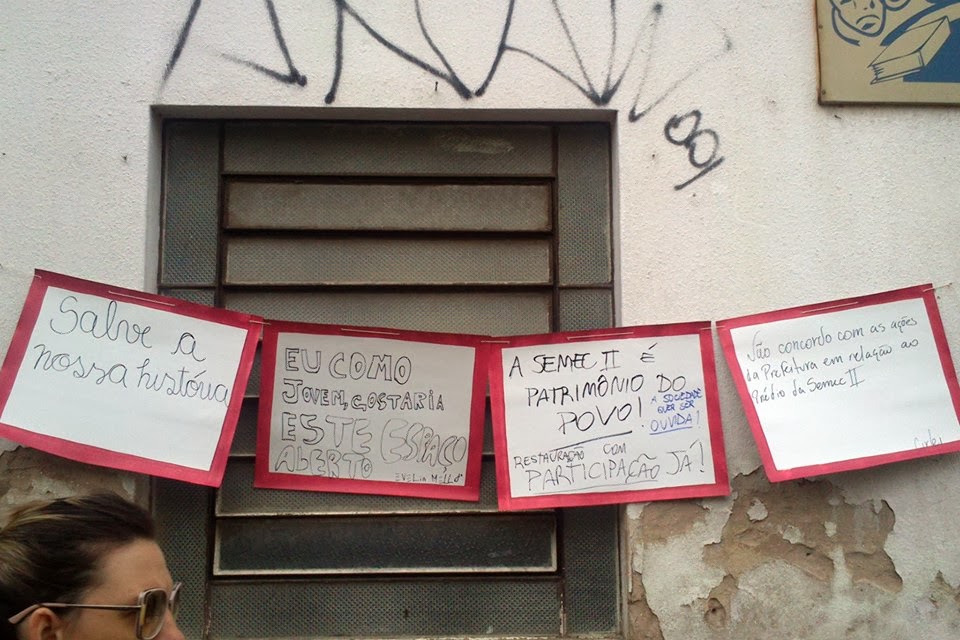 Salve a
nossa história
EU COMO
JOVEM, GOSTARIA
ESTE ESPAÇO
ABERTO
EVELIN MELLO
A SEMEC II É
PATRIMÔNIO DO
POVO!
A SOCIEDADE
QUER SER
OUVIDA!
RESTAURAÇÃO COM
PARTICIPAÇÃO JÁ!
Não concordo com as ações
da Prefeitura em relação ao
Prédio da Semec II